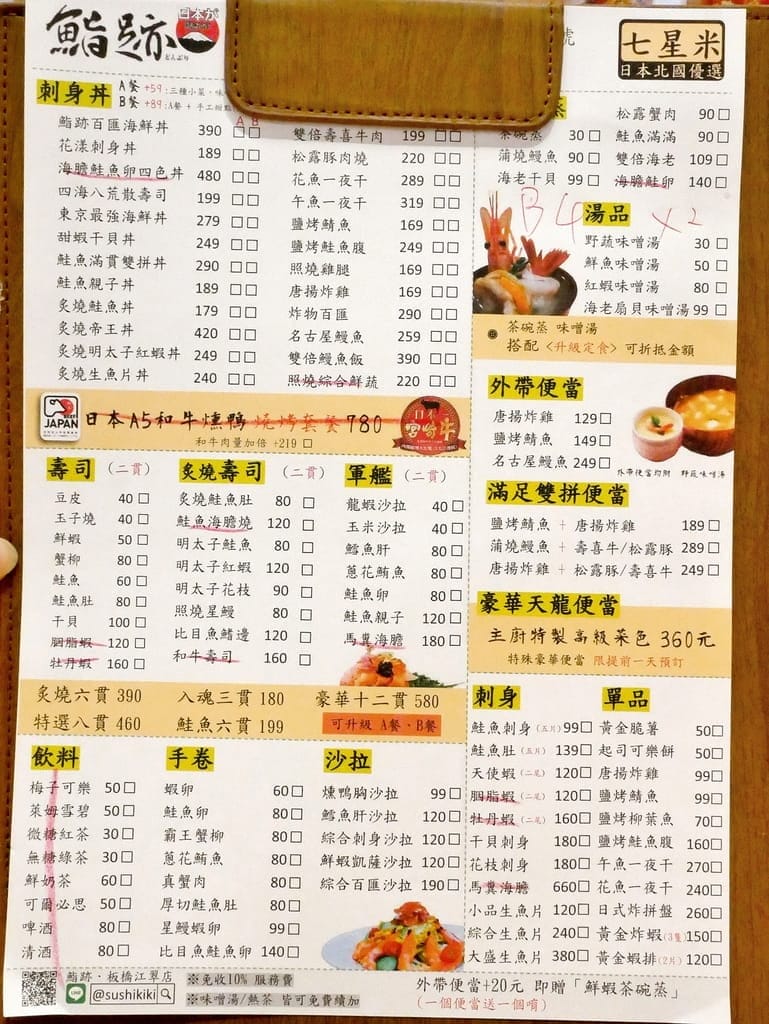 鮨跡
日本が
どんぶり
號
七星米
日本北國優選
刺身丼
A餐 +59:三種小菜、味
B餐 +89:A餐 + 手工甜點
A B
鮨跡百匯海鮮丼 390 □□
花漾刺身丼 189 □□
海膽鮭魚卵四色丼 480 □□
四海八荒散壽司 199 □□
東京最強海鮮丼 279 □□
甜蝦干貝丼 249 □□
鮭魚滿貫雙拼丼 290 □□
鮭魚親子丼 189 □□
炙燒鮭魚丼 179 □□
炙燒帝王丼 420 □□
炙燒明太子紅蝦丼 249 □□
炙燒生魚片丼 240 □□
雙倍壽喜牛肉 199 □□
松露豚肉燒 220 □□
花魚一夜干 289 □□
午魚一夜干 319 □□
鹽烤鯖魚 169 □□
鹽烤鮭魚腹 249 □□
照燒雞腿 169 □□
唐揚炸雞 169 □□
炸物百匯 290 □□
名古屋鰻魚 259 □□
雙倍鰻魚飯 390 □□
照燒綜合鮮蔬 220 □□
蒸
茶碗蒸 30 □
蒲燒鰻魚 90 □
海老干貝 99 □
松露蟹肉 90 □
鮭魚滿滿 90 □
雙倍海老 109 □
海膽鮭卵 140 □
B4 x2
湯品
野蔬味噌湯 30 □
鮮魚味噌湯 50 □
紅蝦味噌湯 80 □
海老扇貝味噌湯 99 □
● 茶碗蒸 味噌湯
搭配<升級定食>可折抵金額
JAPAN
日本A5和牛燻鴨 燒烤套餐 780
和牛肉量加倍 +219 □
日本
宮崎牛
外帶便當
唐揚炸雞 129 □
鹽烤鯖魚 149 □
名古屋鰻魚 249 □
外帶便當均附 野蔬味噌湯
滿足雙拼便當
鹽烤鯖魚 + 唐揚炸雞 189 □
蒲燒鰻魚 + 壽喜牛/松露豚 289 □
唐揚炸雞 + 松露豚/壽喜牛 249 □
豪華天龍便當
主廚特製高級菜色 360元
特殊豪華便當 限提前一天預訂
壽司 (二貫)
豆皮 40 □
玉子燒 40 □
鮮蝦 50 □
蟹柳 80 □
鮭魚 60 □
鮭魚肚 80 □
干貝 100 □
胭脂蝦 120 □
牡丹蝦 160 □
炙燒壽司 (二貫)
炙燒鮭魚肚 80 □
鮭魚海膽燒 120 □
明太子鮭魚 80 □
明太子紅蝦 120 □
明太子花枝 90 □
照燒星鰻 80 □
比目魚鰭邊 120 □
和牛壽司 160 □
軍艦 (二貫)
龍蝦沙拉 40 □
玉米沙拉 40 □
鱈魚肝 80 □
蔥花鮪魚 80 □
鮭魚卵 80 □
鮭魚親子 120 □
馬糞海膽 180 □
炙燒六貫 390 入魂三貫 180 豪華十二貫 580
特選八貫 460 鮭魚六貫 199 可升級 A餐、B餐
飲料
梅子可樂 50 □
萊姆雪碧 50 □
微糖紅茶 30 □
無糖綠茶 30 □
鮮奶茶 60 □
可爾必思 50 □
啤酒 80 □
清酒 80 □
手卷
蝦卵 60 □
鮭魚卵 80 □
霸王蟹柳 80 □
蔥花鮪魚 80 □
真蟹肉 80 □
厚切鮭魚肚 80 □
星鰻蝦卵 99 □
比目魚鮭魚卵 140 □
沙拉
燻鴨胸沙拉 99 □
鱈魚肝沙拉 120 □
綜合刺身沙拉 120 □
鮮蝦凱薩沙拉 120 □
綜合百匯沙拉 190 □
刺身
鮭魚刺身(五片) 99 □
鮭魚肚(五片) 139 □
天使蝦(二尾) 120 □
胭脂蝦(二尾) 120 □
牡丹蝦(二尾) 160 □
干貝刺身 180 □
花枝刺身 180 □
馬糞海膽 660 □
小品生魚片 120 □
綜合生魚片 240 □
大盛生魚片 380 □
單品
黃金脆薯 50 □
起司可樂餅 50 □
唐揚炸雞 99 □
鹽烤鯖魚 99 □
鹽烤柳葉魚 70 □
鹽烤鮭魚腹 160 □
午魚一夜干 270 □
花魚一夜干 240 □
日式炸拼盤 260 □
黃金炸蝦(3隻) 150 □
黃金蝦排(2片) 120 □
鮨跡·板橋江翠店
LINE @sushikiki
※免收10% 服務費
※味噌湯/熱茶 皆可免費續加
外帶便當+20元 即贈「鮮蝦茶碗蒸」
(一個便當送一個唷)